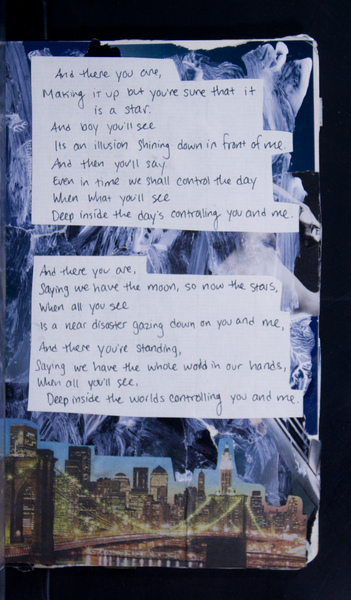 And there you are,
Making it up but you're sure that it
is a star.
And boy you'll see
Its an illusion shining down in front of me.
And then you'll say
Even in time we shall control the day
When what you'll see
Deep inside the day's controlling you and me.
And there you are,
Saying we have the moon, so now the stars,
When all you see
is a near disaster gazing down on you and me,
And there you're standing,
Saying we have the whole world in our hands,
When all you'll see,
Deep inside the worlds controlling you and me.